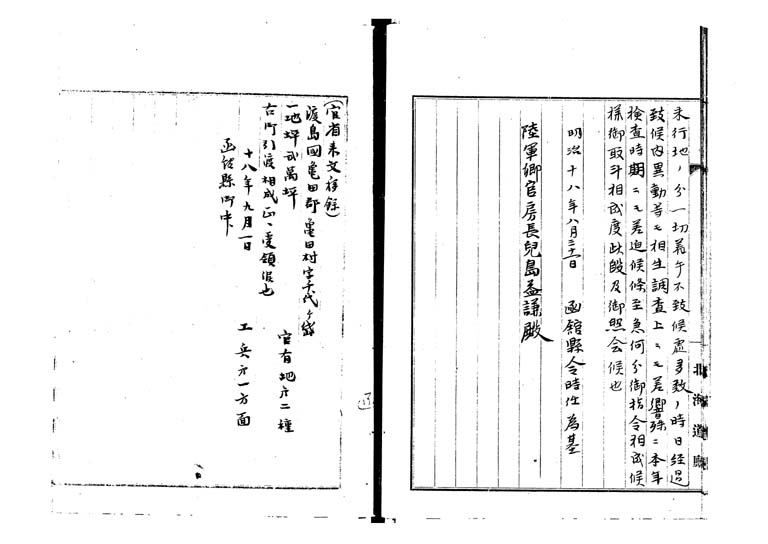 未行地ノ分一切義午不致候處多数ノ時日経過
致候内異動等モ相生調査上ニモ差響殊ニ本年
検査時期ニモ差迫候條至急何分御指令相成候
様御取斗相成度此段及御照会候也
明治十八年八月三十一日 函館縣令時任為基
陸軍卿官房長児島益謙殿
北海道廳
(官省来文存録)
渡島國亀田郡亀田村字千代ヶ岱
官有地第二種
一地坪弐萬坪
右所引渡相成正ニ受領候也
十八年九月一日 工兵第一方面
函館縣御中